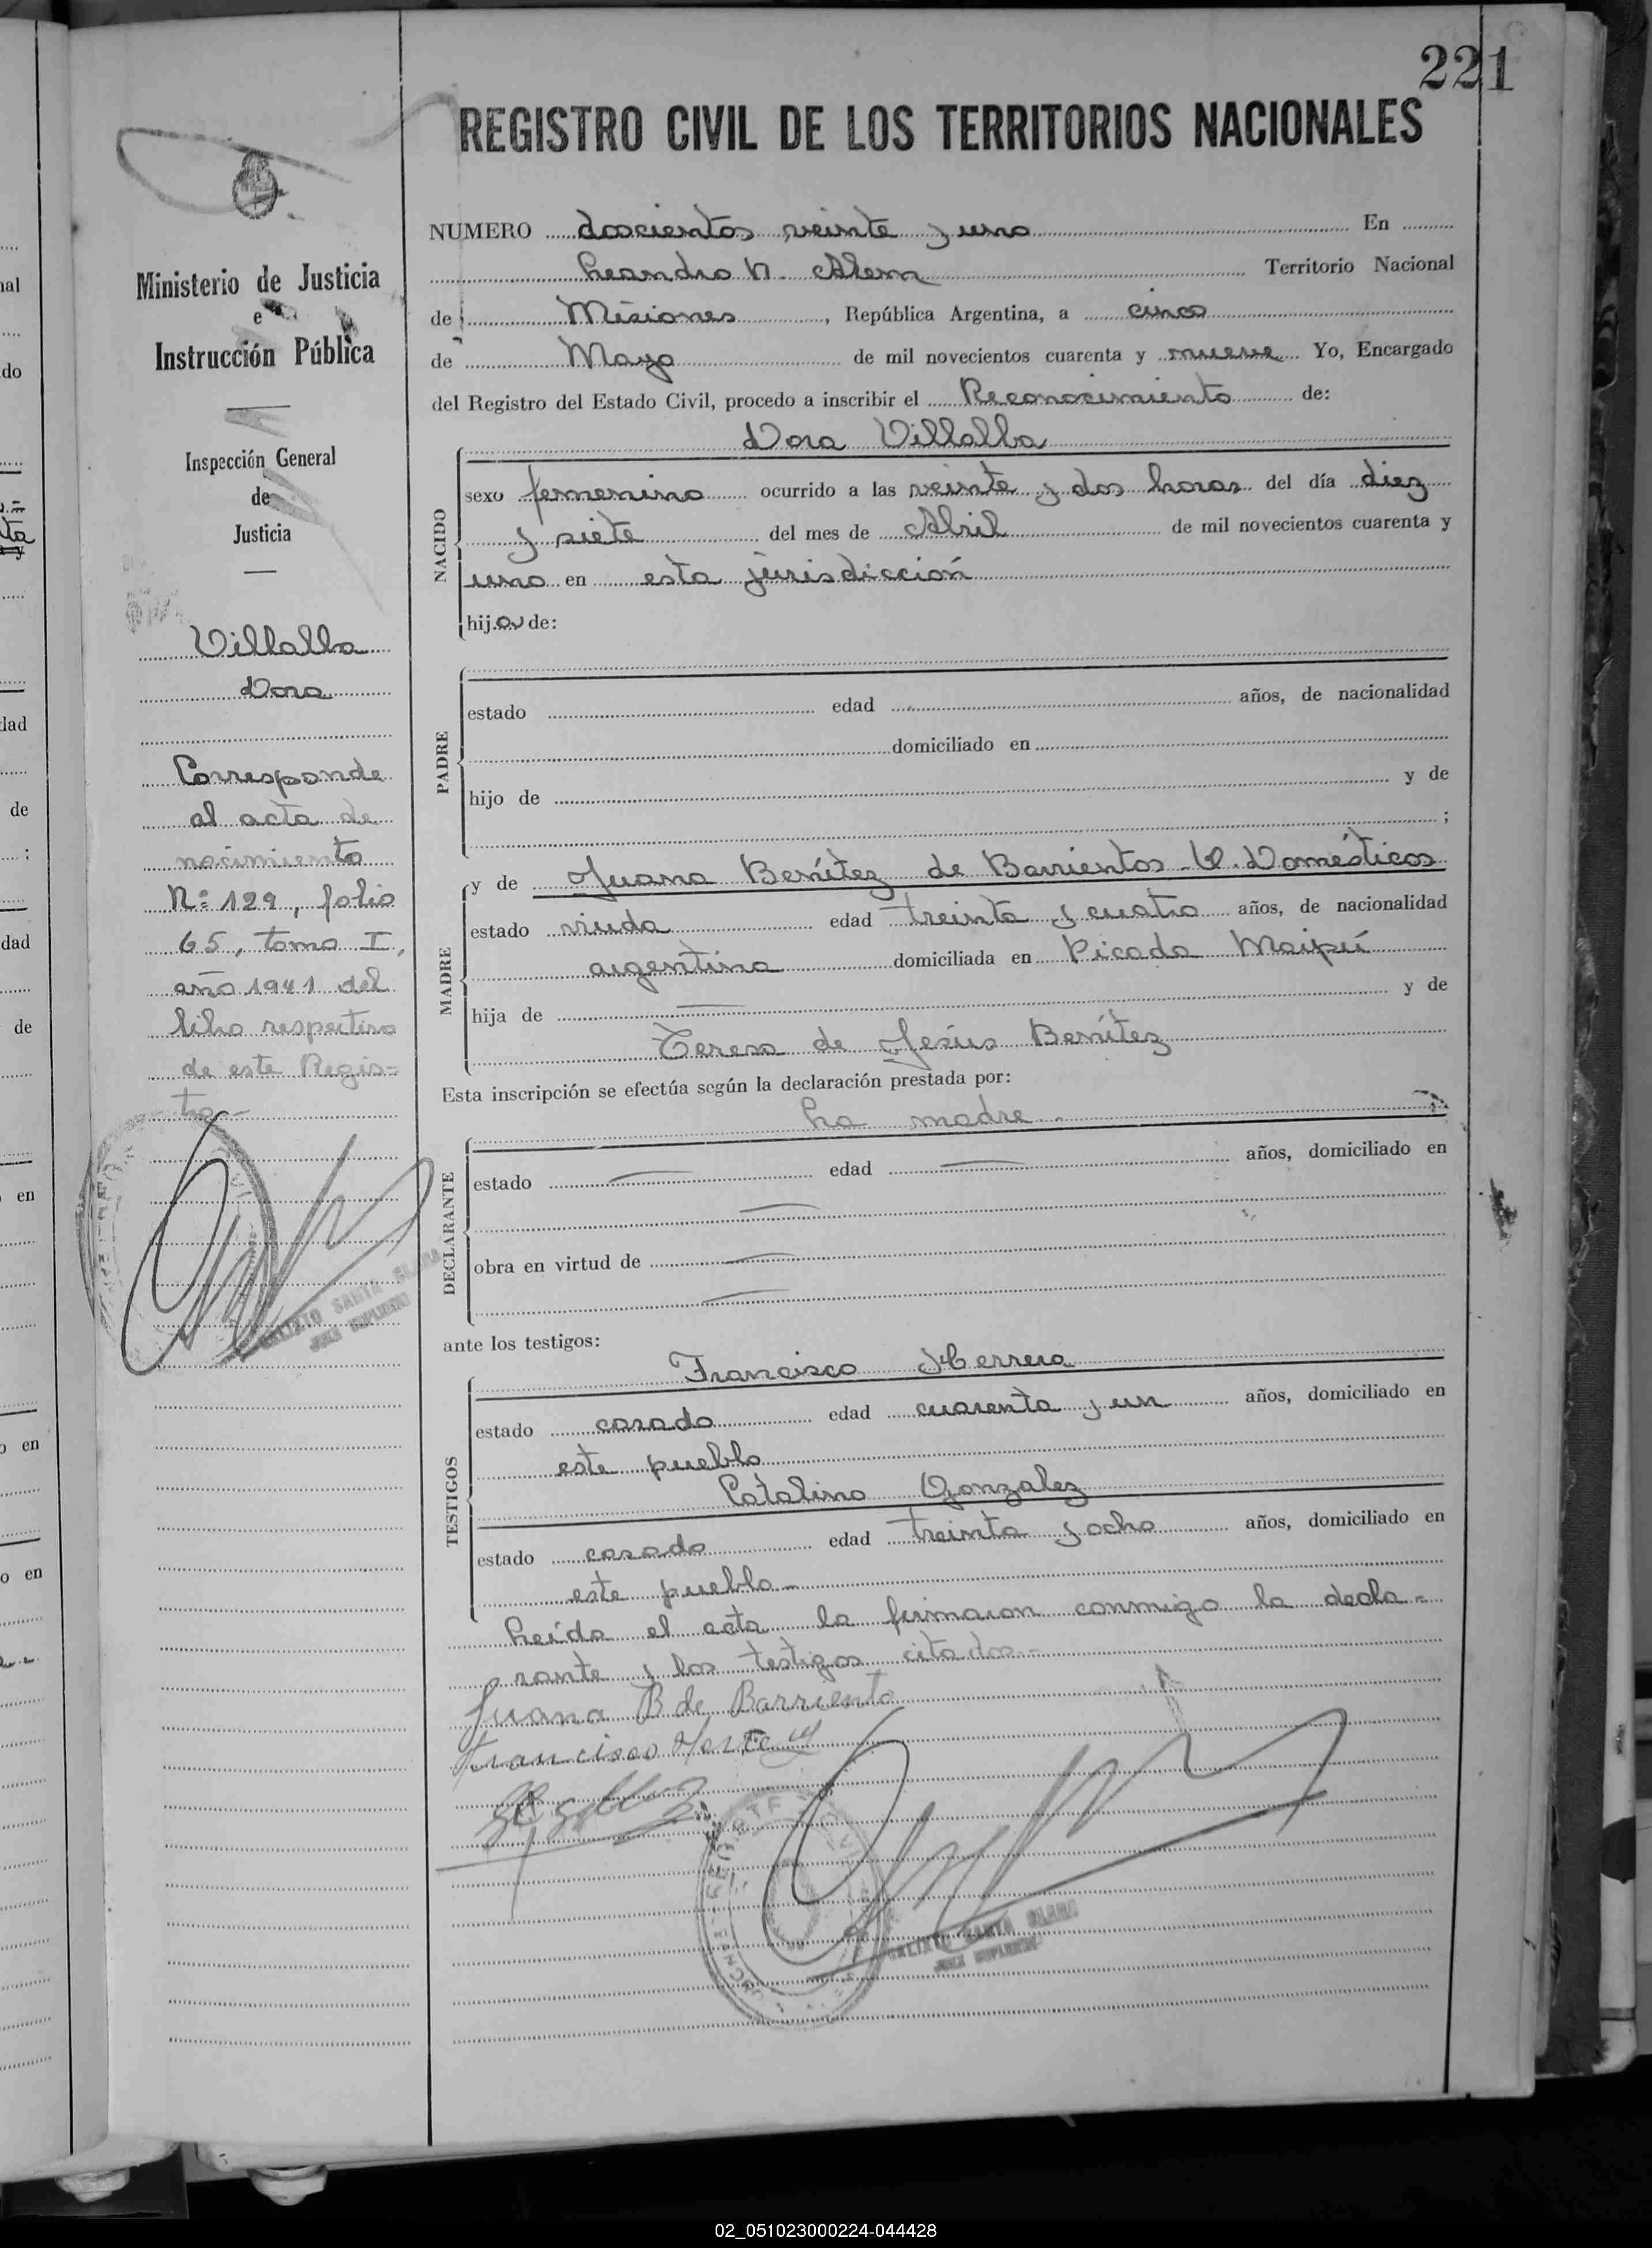 221
REGISTRO CIVIL DE LOS TERRITORIOS NACIONALES
Ministerio de Justicia
e
Instrucción Pública
Inspección General
de
Justicia
Villalba
Dora
Corresponde
al acta de
nacimiento
Nº 129, folio
65, tomo I,
año 1941 del
libro respectivo
de este Regis=
tro-
CALIXTO SANTA CLARA
JUEZ SUPLENTE
NUMERO doscientos veinte y uno En
Leandro N. Alem Territorio Nacional
de Misiones, República Argentina, a cinco
de Mayo de mil novecientos cuarenta y nueve Yo, Encargado
del Registro del Estado Civil, procedo a inscribir el Reconocimiento de:
Dora Villalba
NACIDO
sexo femenino ocurrido a las veinte y dos horas del día diez
y siete del mes de Abril de mil novecientos cuarenta y
uno en esta jurisdicción
hija de:
PADRE
estado edad años, de nacionalidad
domiciliado en
hijo de y de
;
MADRE
y de Juana Benítez de Barrientos-Q. Domésticos
estado viuda edad treinta y cuatro años, de nacionalidad
argentina domiciliada en Picada Maipú
hija de y de
Teresa de Jesús Benítez
Esta inscripción se efectúa según la declaración prestada por:
La madre
DECLARANTE
estado edad años, domiciliado en
obra en virtud de
ante los testigos:
TESTIGOS
Francisco Herrera
estado casado edad cuarenta y un años, domiciliado en
este pueblo
Catalino Gonzalez
estado casado edad treinta y ocho años, domiciliado en
este pueblo-
Leída el acta la firmaron conmigo la decla=
rante y los testigos citados.=
Juana B de Barriento
Francisco Herrera
CALIXTO SANTA CLARA
JUEZ SUPLENTE
02_051023000224-044428